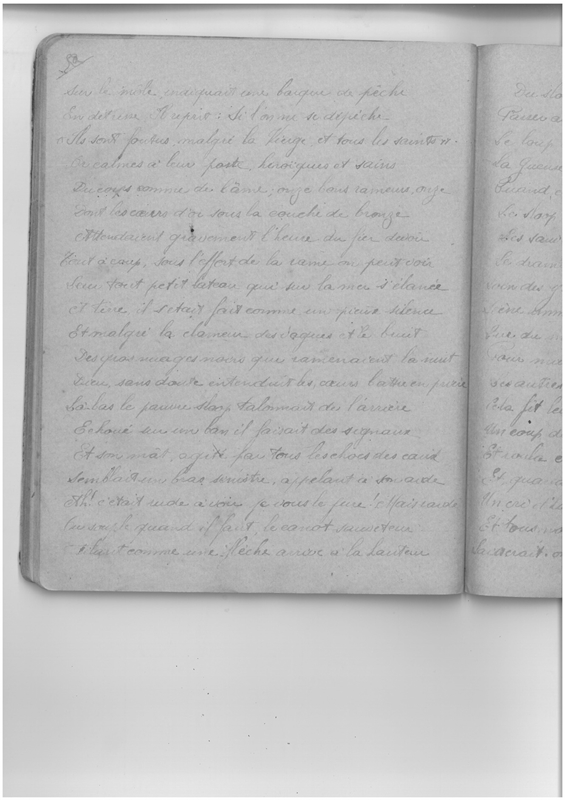 Sur le môle craquait une barque de pêche
En détresse. Il reprit : Si l'on ne se dépêche
Ils sont foutus, malgré la Vierge et tous les saints
Or calmes à leur poste, héroïques et sains
Du corps comme de l'âme, onze bons rameurs, onze
Dont les cœurs d'or sous la couche de bronze
Attendaient gravement l'heure du fier devoir
Tout à coup, sous l'effort de la rame on peut voir
Leur tout petit bateau qui sur la mer s'élance
À terre il s'était fait comme un pieux silence
Et malgré la clameur des vagues et le bruit
Des gros nuages noirs que ramenaient la nuit
Dieu, sans doute entendait les cœurs battre en
Là bas le pauvre Sloop talonnait dès l'arrière
Echoué sur un banc il faisait des signaux
Et son mât, agité par tous les chocs des eaux
Semblait un bras sinistre, appelant à son aide
Ah! c'était rude à voir je vous le jure! Mais
quand il faut, le canot sauveteur
comme une flèche arrive à la hauteur
Du
Le loup
La
Quand,
Le Sloop
Les
Le
Et
Et
Un cri
Et tous